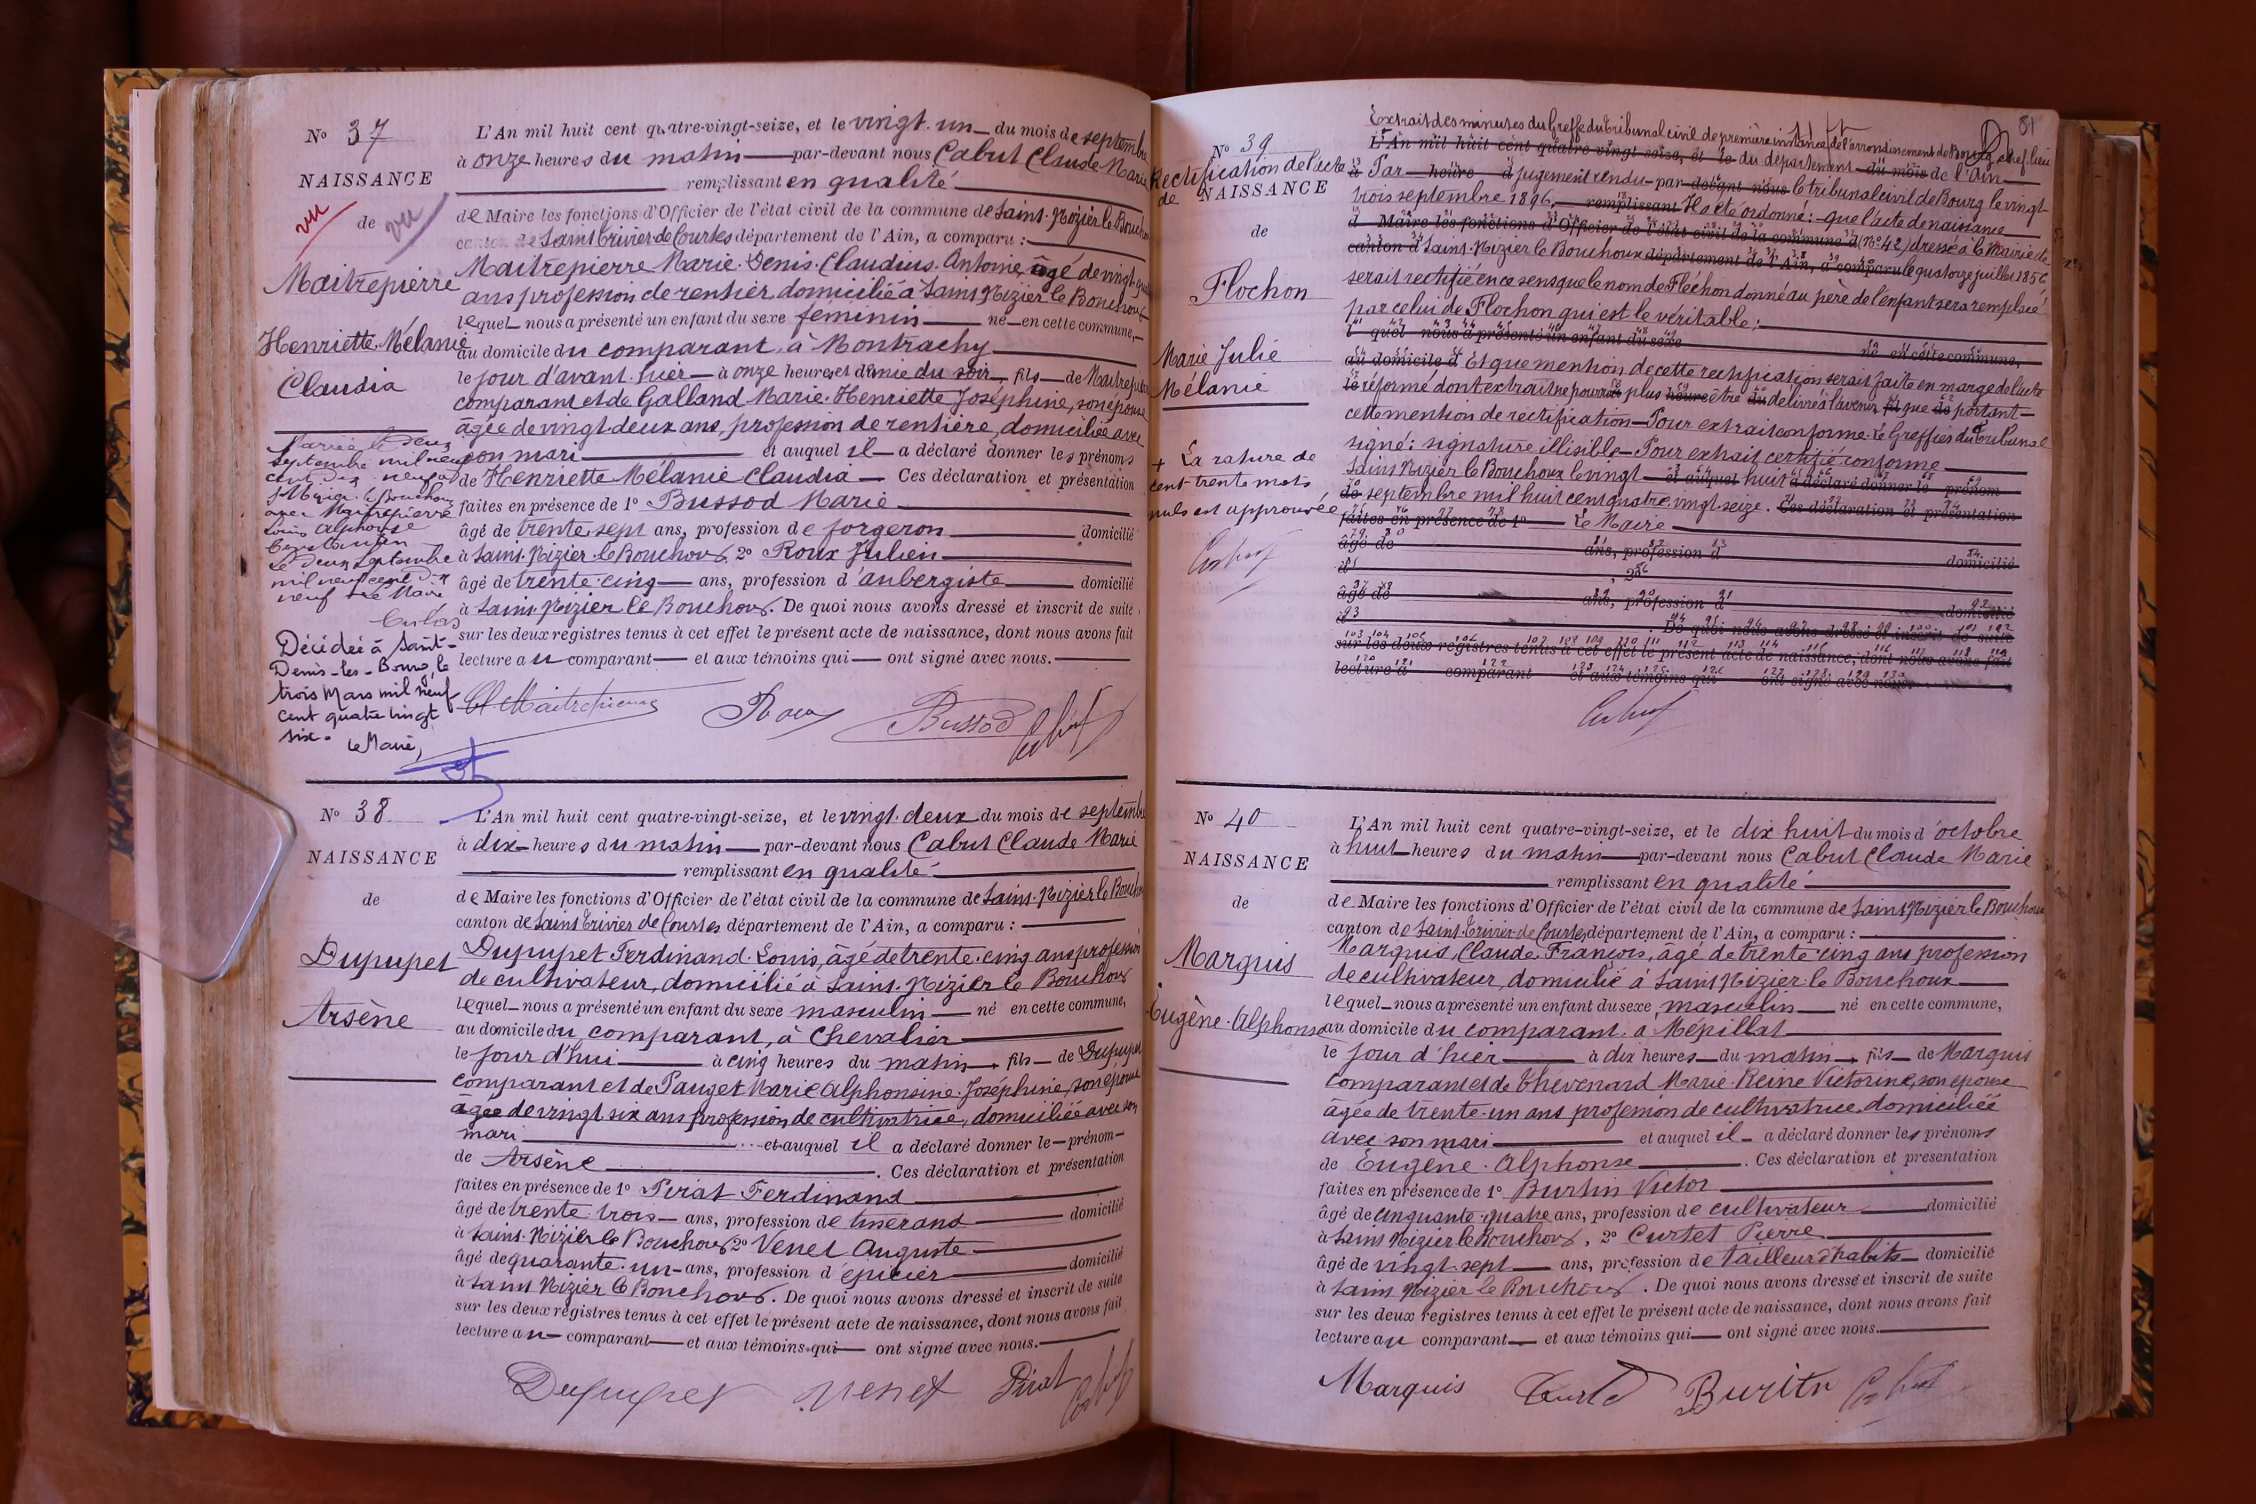 No 37
NAISSANCE
de
vu
vu
Maitrepierre
Henriette Mélanie
Claudia
Mariée le deux
septembre mil neuf
cent dix neuf à
St Nizier le Bouchoux
avec Maitrepierre
Louis Alphonse
le deux septembre
mil neuf cent dix
neuf Le Maire
Décédée à Saint-
Denis-les-Bourg, le
trois Mars mil neuf
cent quatre vingt
six.
Le Maire,
L'An mil huit cent quatre-vingt-seize, et le vingt-un du mois de septembre
à onze heures du matin par-devant nous Cabut Claude Marie
remplissant en qualité
de Maire les fonctions d'Officier de l'état civil de la commune de Saint-Nizier le Bouchoux
canton de Saint Trivier de Courtes département de l'Ain, a comparu :
Maitrepierre Marie-Denis-Claudius-Antoine, âgé de vingt
ans profession de rentier, domicilié à Saint Nizier le Bouchoux
lequel nous a présenté un enfant du sexe féminin né en cette commune,
au domicile du comparant, à Montrachy
le jour d'avant-hier à onze heures et demie du soir, fils de Maitrepierre
comparant et de Galland Marie-Henriette Joséphine, son épouse
âgée de vingt-deux ans, profession de rentière, domiciliée avec
son mari et auquel il a déclaré donner les prénoms
de Henriette Mélanie Claudia Ces déclaration et présentation
faites en présence de 1o Bussod Marie
âgé de trente-sept ans, profession de forgeron domicilié
à Saint-Nizier-le Bouchoux, 2o Roux Julien
âgé de trente-cinq ans, profession d'aubergiste domicilié
à Saint-Nizier le Bouchoux. De quoi nous avons dressé et inscrit de suite
sur les deux registres tenus à cet effet le présent acte de naissance, dont nous avons fait
lecture au comparant et aux témoins qui ont signé avec nous.
Maitrepierre Roux Bussod Cabut
No 38
NAISSANCE
de
Dupupet
Arsène
L'An mil huit cent quatre-vingt-seize, et le vingt-deux du mois de septembre
à dix heures du matin par-devant nous Cabut Claude Marie
remplissant en qualité
de Maire les fonctions d'Officier de l'état civil de la commune de Saint-Nizier le Bouchoux
canton de Saint Trivier de Courtes département de l'Ain, a comparu :
Dupupet Ferdinand-Louis, âgé de trente-cinq ans profession
de cultivateur, domicilié à Saint-Nizier le Bouchoux
lequel nous a présenté un enfant du sexe masculin né en cette commune,
au domicile du comparant, à Chevalier
le jour d'hui à cinq heures du matin, fils de Dupupet
comparant et de Pauget Marie Alphonsine-Joséphine, son épouse
âgée de vingt six ans profession de cultivatrice, domiciliée avec son
mari et auquel il a déclaré donner le prénom
de Arsène. Ces déclaration et présentation
faites en présence de 1o Pirat Ferdinand
âgé de trente-trois ans, profession de tisserand domicilié
à Saint-Nizier le Bouchoux 2o Venet Auguste
âgé de quarante-un ans, profession d'épicier domicilié
à Saint Nizier le Bouchoux. De quoi nous avons dressé et inscrit de suite
sur les deux registres tenus à cet effet le présent acte de naissance, dont nous avons fait
lecture au comparant et aux témoins qui ont signé avec nous.
Dupupet Venet Pirat Cabut
81
No 39
Rectification de l'acte
de NAISSANCE
de
Flochon
Marie Julie
Mélanie
+ La rature de
cent trente mots
nuls est approuvée
Cabut
Extrait des minutes du Greffe du Tribunal civil de première instance de l'arrondissement de Bourg, chef-lieu
L'An mil huit cent quatre-vingt-seize, et le du département du mois de l'Ain
à Par heure d jugement rendu par devant nous le tribunal civil de Bourg le vingt
trois septembre 1896, remplissant Il a été ordonné : que l'acte de naissance
d Maire les fonctions d'Officier de l'état civil de la commune d (No 42) dressé à la Mairie de
canton d Saint-Nizier le Bouchoux département de l'Ain, a comparu le quatorze juillet 1856
serait rectifié en ce sens que le nom de Fléchon donné au père de l'enfant sera remplacé
par celui de Flochon qui est le véritable ;
l quel nous a présenté un enfant du sexe né en cette commune,
au domicile d Et que mention de cette rectification serait faite en marge de l'acte
le réformé dont extrait ne pourrait plus heure être du délivré à l'avenir fil que de portant
cette mention de rectification Pour extrait conforme Le Greffier du Tribunal
signé : signature illisible Pour extrait certifié conforme
Saint Nizier le Bouchoux le vingt et auquel huit a déclaré donner le prénom
de septembre mil huit cent quatre-vingt-seize. Ces déclaration et présentation
faites en présence de 1o Le Maire
âgé de ans, profession d domicilié
à , 2o
âgé de ans, profession d domicilié
à . De quoi nous avons dressé et inscrit de suite
sur les deux registres tenus à cet effet le présent acte de naissance, dont nous avons fait
lecture à comparant et aux témoins qui ont signé avec nous.
Cabut
No 40
NAISSANCE
de
Marquis
Eugène-Alphonse
L'An mil huit cent quatre-vingt-seize, et le dix huit du mois d'octobre
à huit heures du matin par-devant nous Cabut Claude Marie
remplissant en qualité
de Maire les fonctions d'Officier de l'état civil de la commune de Saint Nizier le Bouchoux
canton de Saint-Trivier-de Courtes, département de l'Ain, a comparu :
Marquis, Claude François, âgé de trente-cinq ans profession
de cultivateur, domicilié à Saint Nizier-le Bouchoux
lequel nous a présenté un enfant du sexe masculin né en cette commune,
au domicile du comparant à Mépillat
le jour d'hier à dix heures du matin, fils de Marquis
comparant et de Thevenard Marie-Reine Victorine, son épouse
âgée de trente-un ans profession de cultivatrice domiciliée
avec son mari et auquel il a déclaré donner les prénoms
de Eugène-Alphonse. Ces déclaration et présentation
faites en présence de 1o Burtin Victor
âgé de cinquante-quatre ans, profession de cultivateur domicilié
à Saint Nizier le Bouchoux, 2o Curtet Pierre
âgé de vingt-sept ans, profession de tailleur d'habits domicilié
à Saint Nizier le Bouchoux. De quoi nous avons dressé et inscrit de suite
sur les deux registres tenus à cet effet le présent acte de naissance, dont nous avons fait
lecture au comparant et aux témoins qui ont signé avec nous.
Marquis Curtet Burtin Cabut